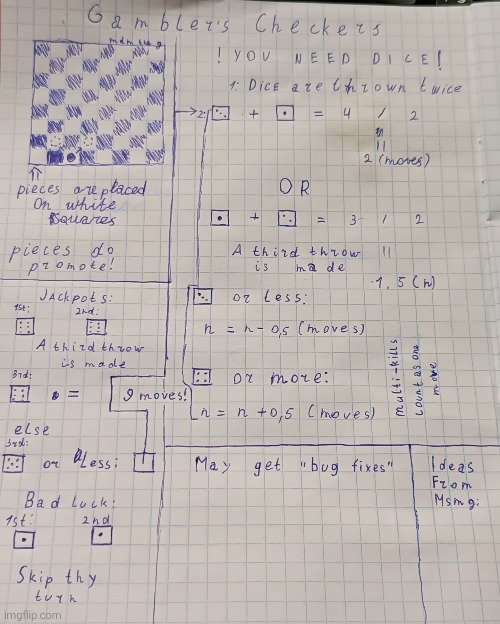 Gambler's Checkers
! YOU NEED DICE!
1: Dice are thrown twice
2: + = 4 / 2
=
2 (moves)
OR
+ = 3 / 2
A third throw
is made
=
1,5 (n)
or less:
n = n-0,5 (moves)
or more:
n = n +0,5 (moves)
multi-kills
count as one
move
pieces are placed
on white
squares
pieces do
promote!
Jackpots:
1st: 2nd:
A third throw
is made
3rd:
= 9 moves!
else
3rd:
or less:
Bad luck:
1st: 2nd
Skip thy
turn
May get "bug fixes"
Ideas
From
Msmg:
imgflip.com